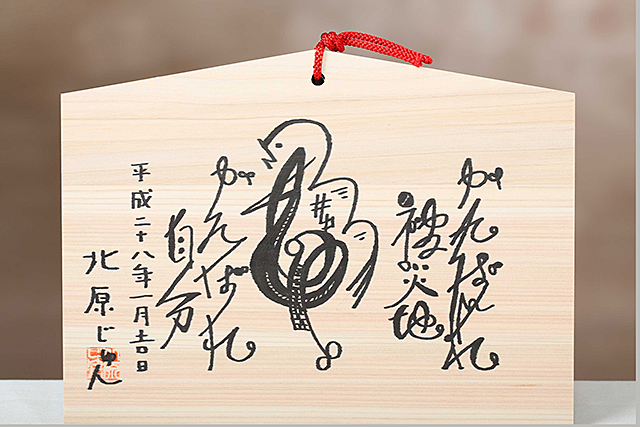 がんばれ
被災地
がんばれ
自分
平成二十八年一月吉日
北原じゅん